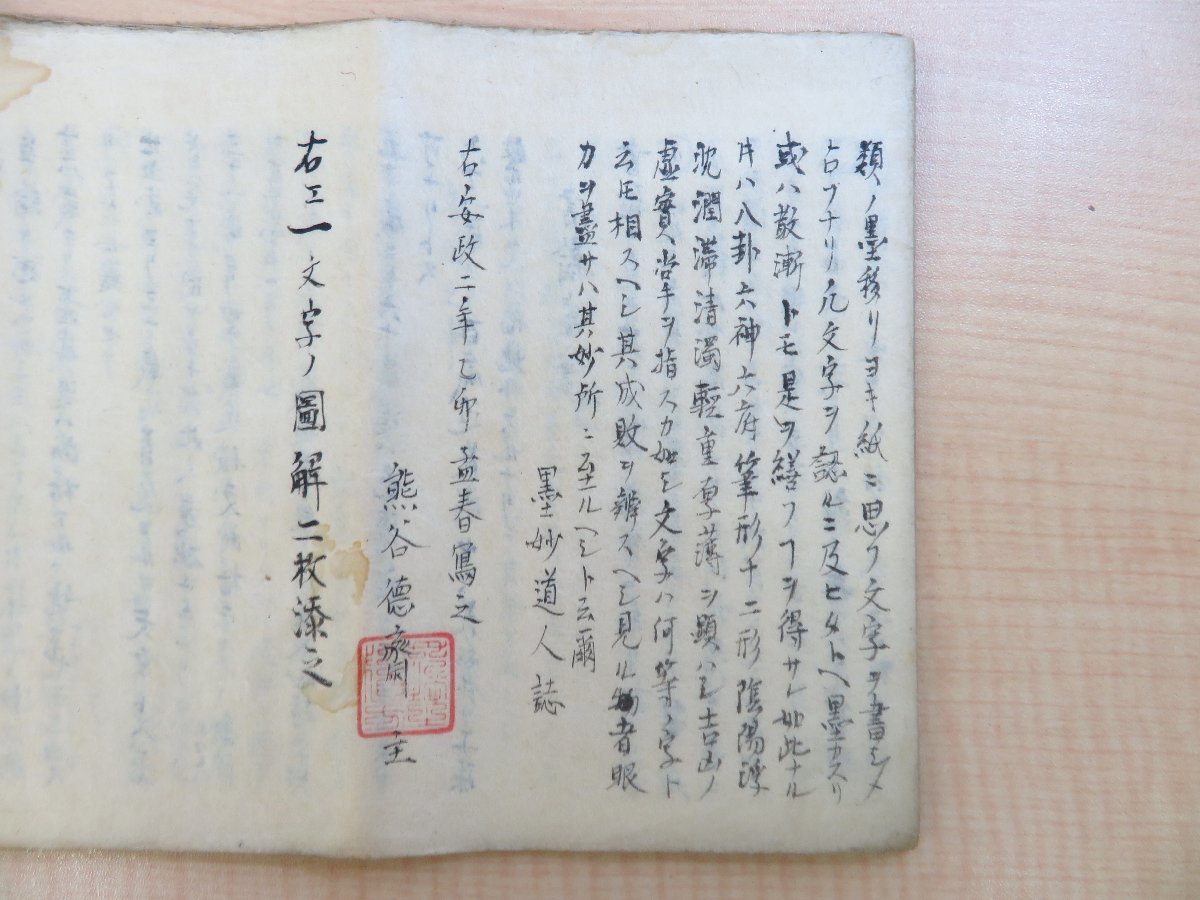 類ノ墨移リヨキ紙ニ思フ文字ヲ書シメ
占ブナリ凡文字ヲ認ルニ及ヒタトヘ墨カスリ
或ハ散漸トモ是ヲ繕フヿヲ得サレ如此ナル
片ハ八卦六神六府筆形十二形陰陽浮
沈潤滞清濁軽重厚薄ヲ顕ハシ吉凶ノ
虚實ハ掌手ヲ指スカ如シ文字ハ何等ノ字ト
云ヒ相スヘシ其成敗ヲ辨スヘシ見ル者眼
力ヲ盡サハ其妙所ニ至ルヘシト云爾
墨妙道人誌
右安政二年乙卯孟春寫之
熊谷德 主
右ニ一文字ノ圖解二枚添之